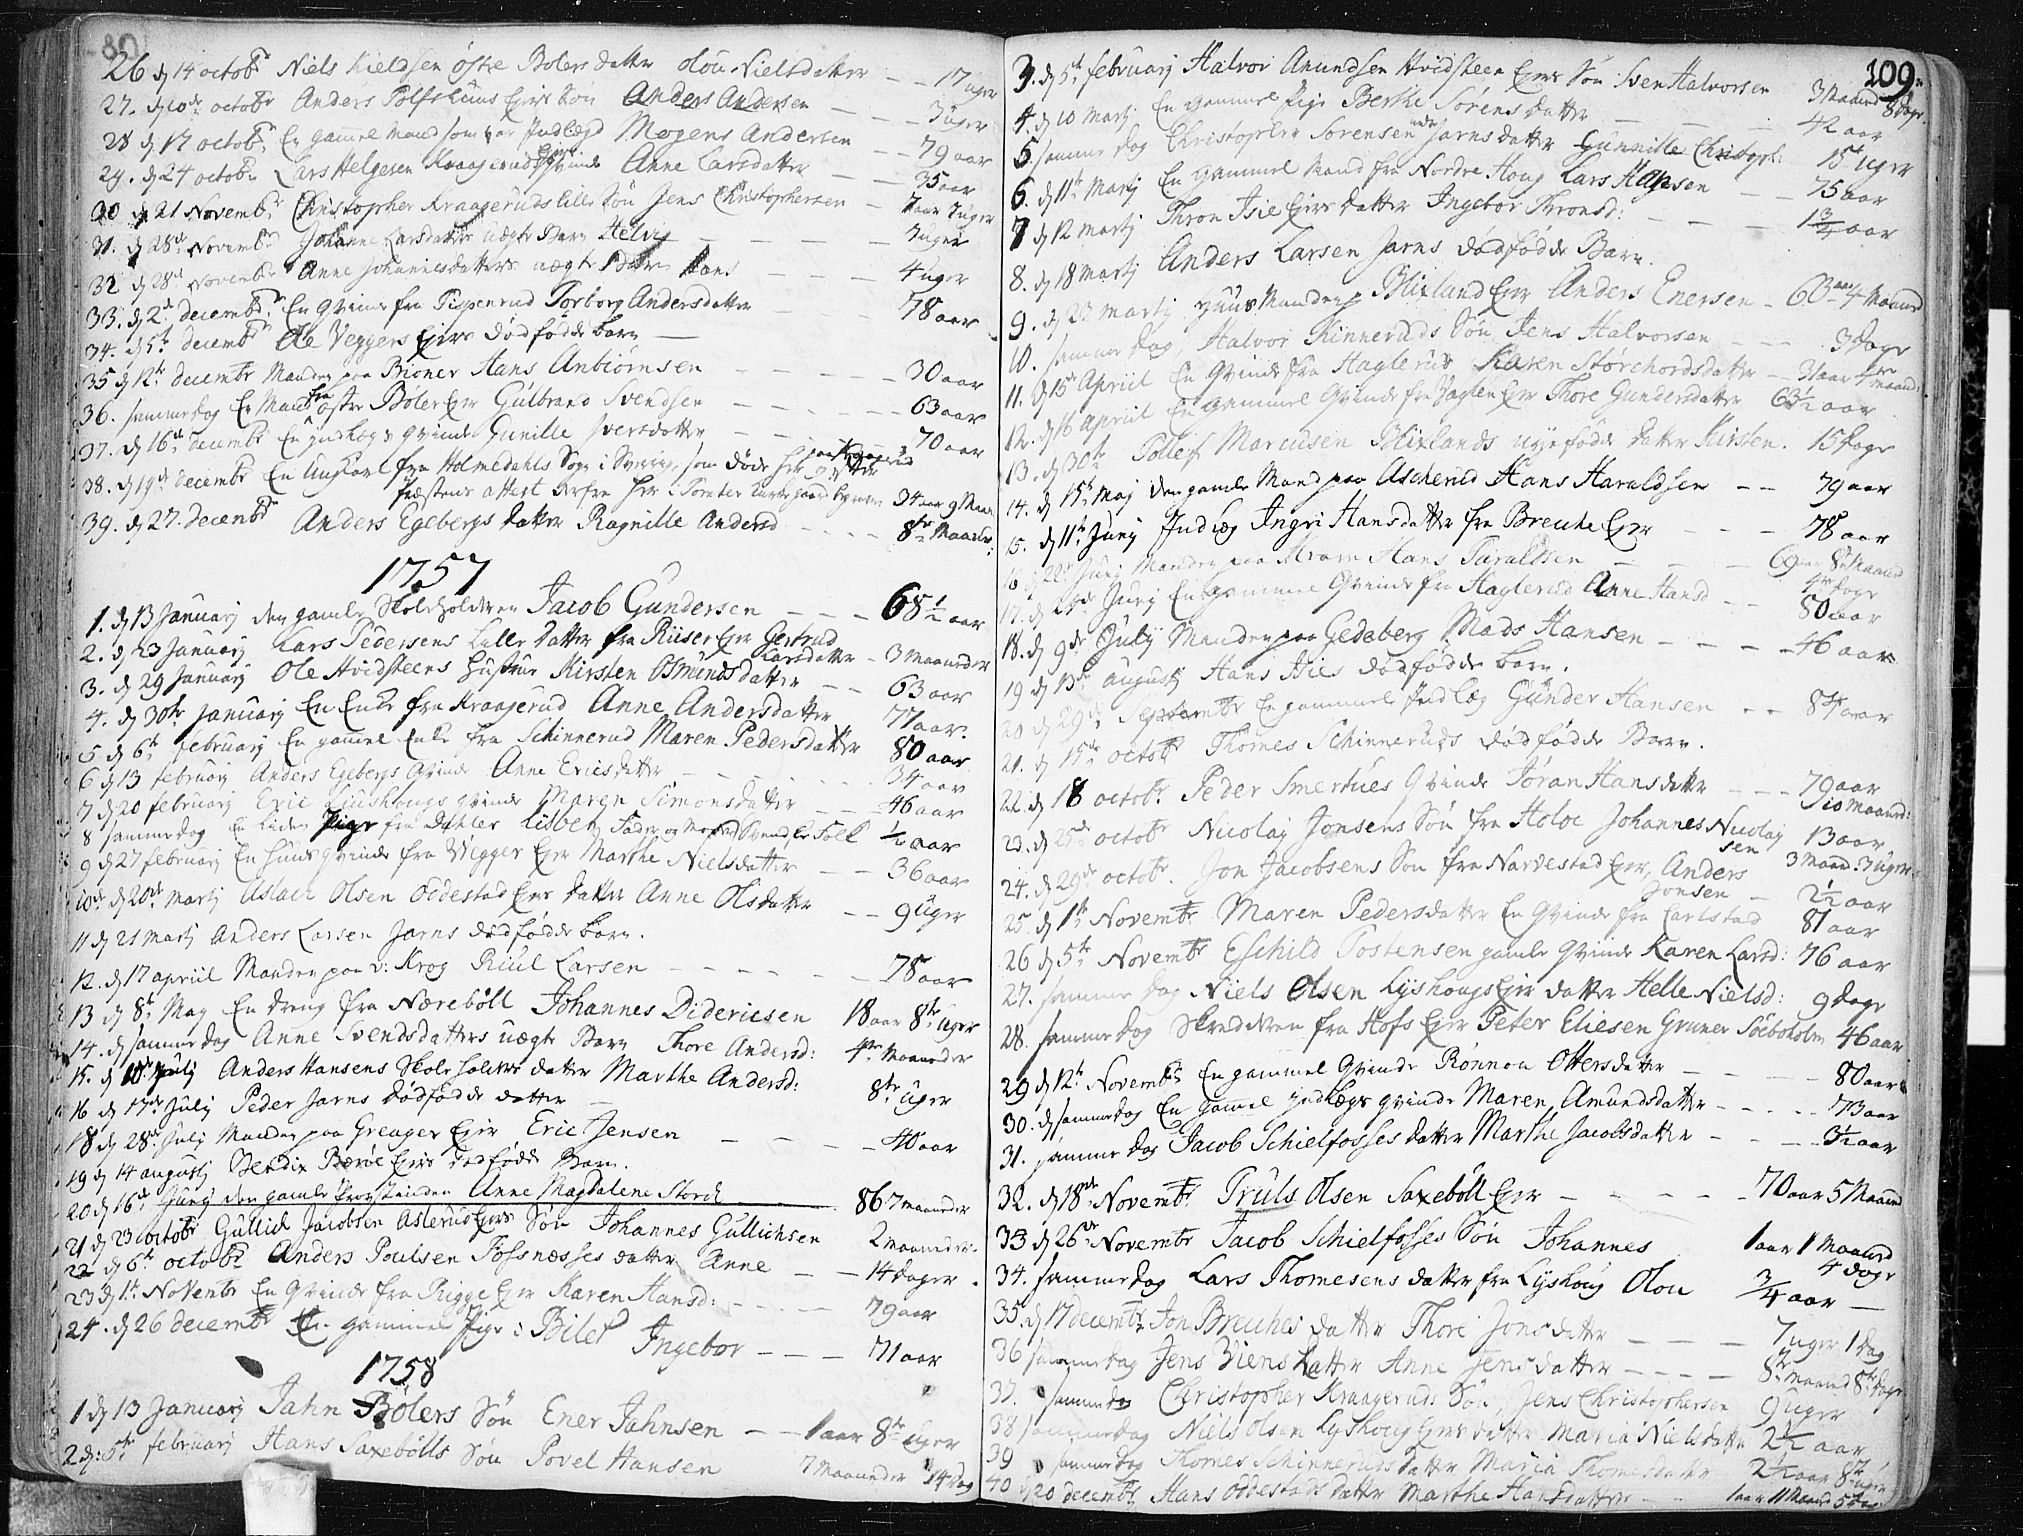 80
26 dj 14 octobr Niels Kieldsen östre Bolers datter olou Nielsdatter -- 17 uger
27. dj 10de octobr Anders Polfshuus Ejers Sön Anders Andersen --- 3 uger
28 dj 17 octobr En gamel Mand som var Indlægd Mogens Andersen -- 79 aar
29. dj 24 octobr Lars Helgesen Kraagerud Ejers qvinde Anne Larsdatter -- 35 aar
30 dj 21 Novembr Christopher Kraageruds lille Sön Jens Christophersen - 7 uger
31. dj 28de Novembr Johanne Larsdatters uægte Barn Helvig ---- 7 uger
32 dj 28de Novembr Anne Johannesdatters uægte Barn Hans ---- 4 uger
33. dj 2de decembr En Qvinde fra Pispenrud Torborg Andersdatter -- 78 aar
34. dj 5te decembr Ole Veggers Ejers dödfödde barn --
35 dj 12te decembr Manden paa Bioner Hans Anbiörnsen ---- 30 aar
36. samme dag En Mand fra östre Böler Ejer Gulbrand Svendsen ---- 63 aar
37. dj 16de decembr En Indlægs qvinde Gunille Iversdatter --- 70 aar
38. dj 19de decembr En Ung Karl fra Holmedahls Sogn i Sverrig, som döde her
Præstens attest derfra her i 34 aar 9 Maan
39. dj 27. decembr Anders Egebergs datter Ragnille Andersd ---- 8te Maaneder
1757
1. dj 13 Januarj den gamle Skoleholderen Jacob Gundersen --- 68½ aar
2. dj 23 Januarj Lars Pedersens Lille datter fra Riiser Ejer Gertrud Larsdatter - 3 maaneder
3. dj 29 Januarj Ole Hvidsteens Hustrue Kirsten Osmundsdatter -- 63 aar
4. dj 30te Januarj En Enke fra Kraagerud Anne Andersdatter 77 aar.
5. dj 6te februarj En gamel Enke fra Schinnerud Maren Pedersdatter 80 aar
6 dj 13 februarj Anders Egebergs Qvinde Anne Ericsdatter ---- 34 aar
7 dj 20 februarj Eric Lyshougs qvinde Maren Simonsdatter -- 46 aar
8 samme dag En liden Pige fra Dahler Lisbet ½ aar
9 dj 27 februarj En Huus qvinde fra Vegger Ejer Marthe Nielsdatter -- 36 aar
10de dj 20de Martj Aslach Olsen Oddestad Ejers datter Anne Olsdatter -- 9 uger
11 dj 21 Martj Anders Larsen Jarns dödfödde barn.
12. dj 17 apriil Manden paa v: Krog Riiul Larsen ------ 78 aar
13 dj 8te Maj En dreng fra Nærebøll Johannes Didericsen 18 aar 8te uger
14. dj samme dag Anne Svendsdatters uægte Barn Thore Andersd: 4re maaneder
15. dj 10de Julij Anders Hansens Skoleholders datter Marthe Andersd: 8te uger
16 dj 17de Julij Peder Jarns dödfödde datter --
18 dj 28de Julij Manden paa Greager Ejer Eric Jensen ---- 40 aar
19 dj 14 augustj Bendix Bæröe Ejers dödfödde Barn.
20 dj 16de Junij den gamle Provstinden Anne Magdalene Storch 86 7 maaneder
21 dj 23 octobr Gullich Jacobsen Aslerud Ejers Sön Johannes Gullichsen 2 maaneder.
22 dj 6te octobr Anders Poulsen Fossnæsses datter Anne -- 14 dager.
23 dj 1te Novembr En Qvinde fra Rigge Ejer Karen Hansd: ---- 79 aar
24. dj 26 decembr En gammel Pige i Bilet Ingebor --- 71 aar
1758
1 dj 13 Januarj Jahn Bölers Sön Ener Jahnsen -- 1 aar 8te uger
2 dj: 5te februarj Hans Saxebölls Sön Povel Hansen 7 maaneder 14 dag
109.
3. dj 5te februarj Halvor Amundsen Hvidsteen Ejers Sön Sven Halvorsen 3 Maaned 8 dage.
4. dj 10 Martj En gammel Pige Berthe Sörensdatter ---- 42 aar
5. samme dag Christopher Sorensen Jarns datter Gunnille Christoph: 15 uger
6. dj 11te Martj En gammel Mand fra Nordre Houg Lars Hansen - 75 aar
7 dj 12 martj Thron Isie Ejers datter Ingebor Thronsd: --- 1¾ aar
8. dj 18 Martj Anders Larsen Jarns dødfødde Barn.
9. dj 23 martj Huus Manden p. Blixland Ejer Anders Enersen - 60 aar 4 Maaned
10. samme dag Halvor Kinneruds Sön Jens Halvorsen --- 3 dage
11. dj 15de Apriil En Qvinde fra Haglerud Karen Storchordsdatter -- 31 aar maaned
12. dj 16 apriil En gammel Qvinde fra Haglen Ejer Thore Gundersdatter 63½ aar
13. dj 30te Tollef Marcusen Blixlands nyefödde datter Kirsten. 15 dage
14. dj 15de Maj den gamle Mand paa Ascherud Hans Haraldsen -- 79 aar
15. dj 11te Junij Indlæg Ingri Hansdatter fra Breuke Ejer --- 78 aar
16 dj 22de Junij Manden paa Hvam Hans Taraldsen --- 69 aar 8te Maaned 4re dage
17. dj 29de Junij En gammel Qvinde fra Haglerud Anne Hansd -- 80 aar
18. dj 9de Julij Manden paa Gedeberg Mads Hansen ---- 46 aar
19 dj 13de augustj Hans Hies dødfödde barn.
20 dj 29de Septembr En gammel Indlæg Gunder Hansen -- 84 aar
21. dj 15de octobr Thomes Schinneruds dødfödde Barn.
22. dj 18 octobr. Peder Smertues Qvinde Jöran Hansdatter --- 79 aar 10 maaned:
23. dj 25de octobr Nicolaj Jonsens Sön fra Holöe Johannes Nicolajsen 13 aar
24. dj 29de octobr. Jon Jacobsens Sön fra Narvestad Ejer, Anders Jonsen - 3 Maand: 3 uger
25. dj 1te Novembr Maren Pedersdatter En Qvinde fra Carlstad 81 aar
26 dj 5te Novembr Eschild Tostensen gamle Qvinde Karen Larsd: 76 aar
27. samme dag Niels Olsen Lyshougs Ejer datter Helle Nielsd: 9 dage
28. samme dag Skredderen fra Hofs Ejer Peter Eliesen Gruner Söeboholm 46 aar
29 dj 12te Novembr En gammel Qvinde Rönnou Ottersdatter ---- 80 aar
30. dj samme dag En gamel Indlægs qvinde Maren Amundsdatter ----- 73 aar
31. samme dag Jacob Schielfosses datter Marthe Jacobsdatter ---- 3½ aar
32. dj 18de Novembr. Truls Olsen Saxeböll Ejer ----- 70 aar 5 Maaned
33 dj 26de Novembr Jacob Schielfosses Sön Johannes 1 aar 1 Maaned 4 dage
34. samme dag Lars Thomesens datter fra Lyshoug Olou ¾ aar -
35. dj 17 decembr Jon Breuches datter Thore Jonsdatter ---- 7 uger 1 dag
36 samme dag Jens Viens datter Anne Jensdatter ---- 8te Maaned 8te dage
37. samme dag Christopher Kraageruds Sön, Jens Christophersen 9 uger
38 samme dag Niels Olsen Lyshoug Ejers datter Maria Nielsdatter 2½ aar
39 samme dag Thomes Schinneruds datter Maria Thomesdatter 2½ aar 8te uger
40 dj 20 decembr Hans Oddestads datter Marthe Hansdatter -- 1 aar 11 Maaned 5 dag